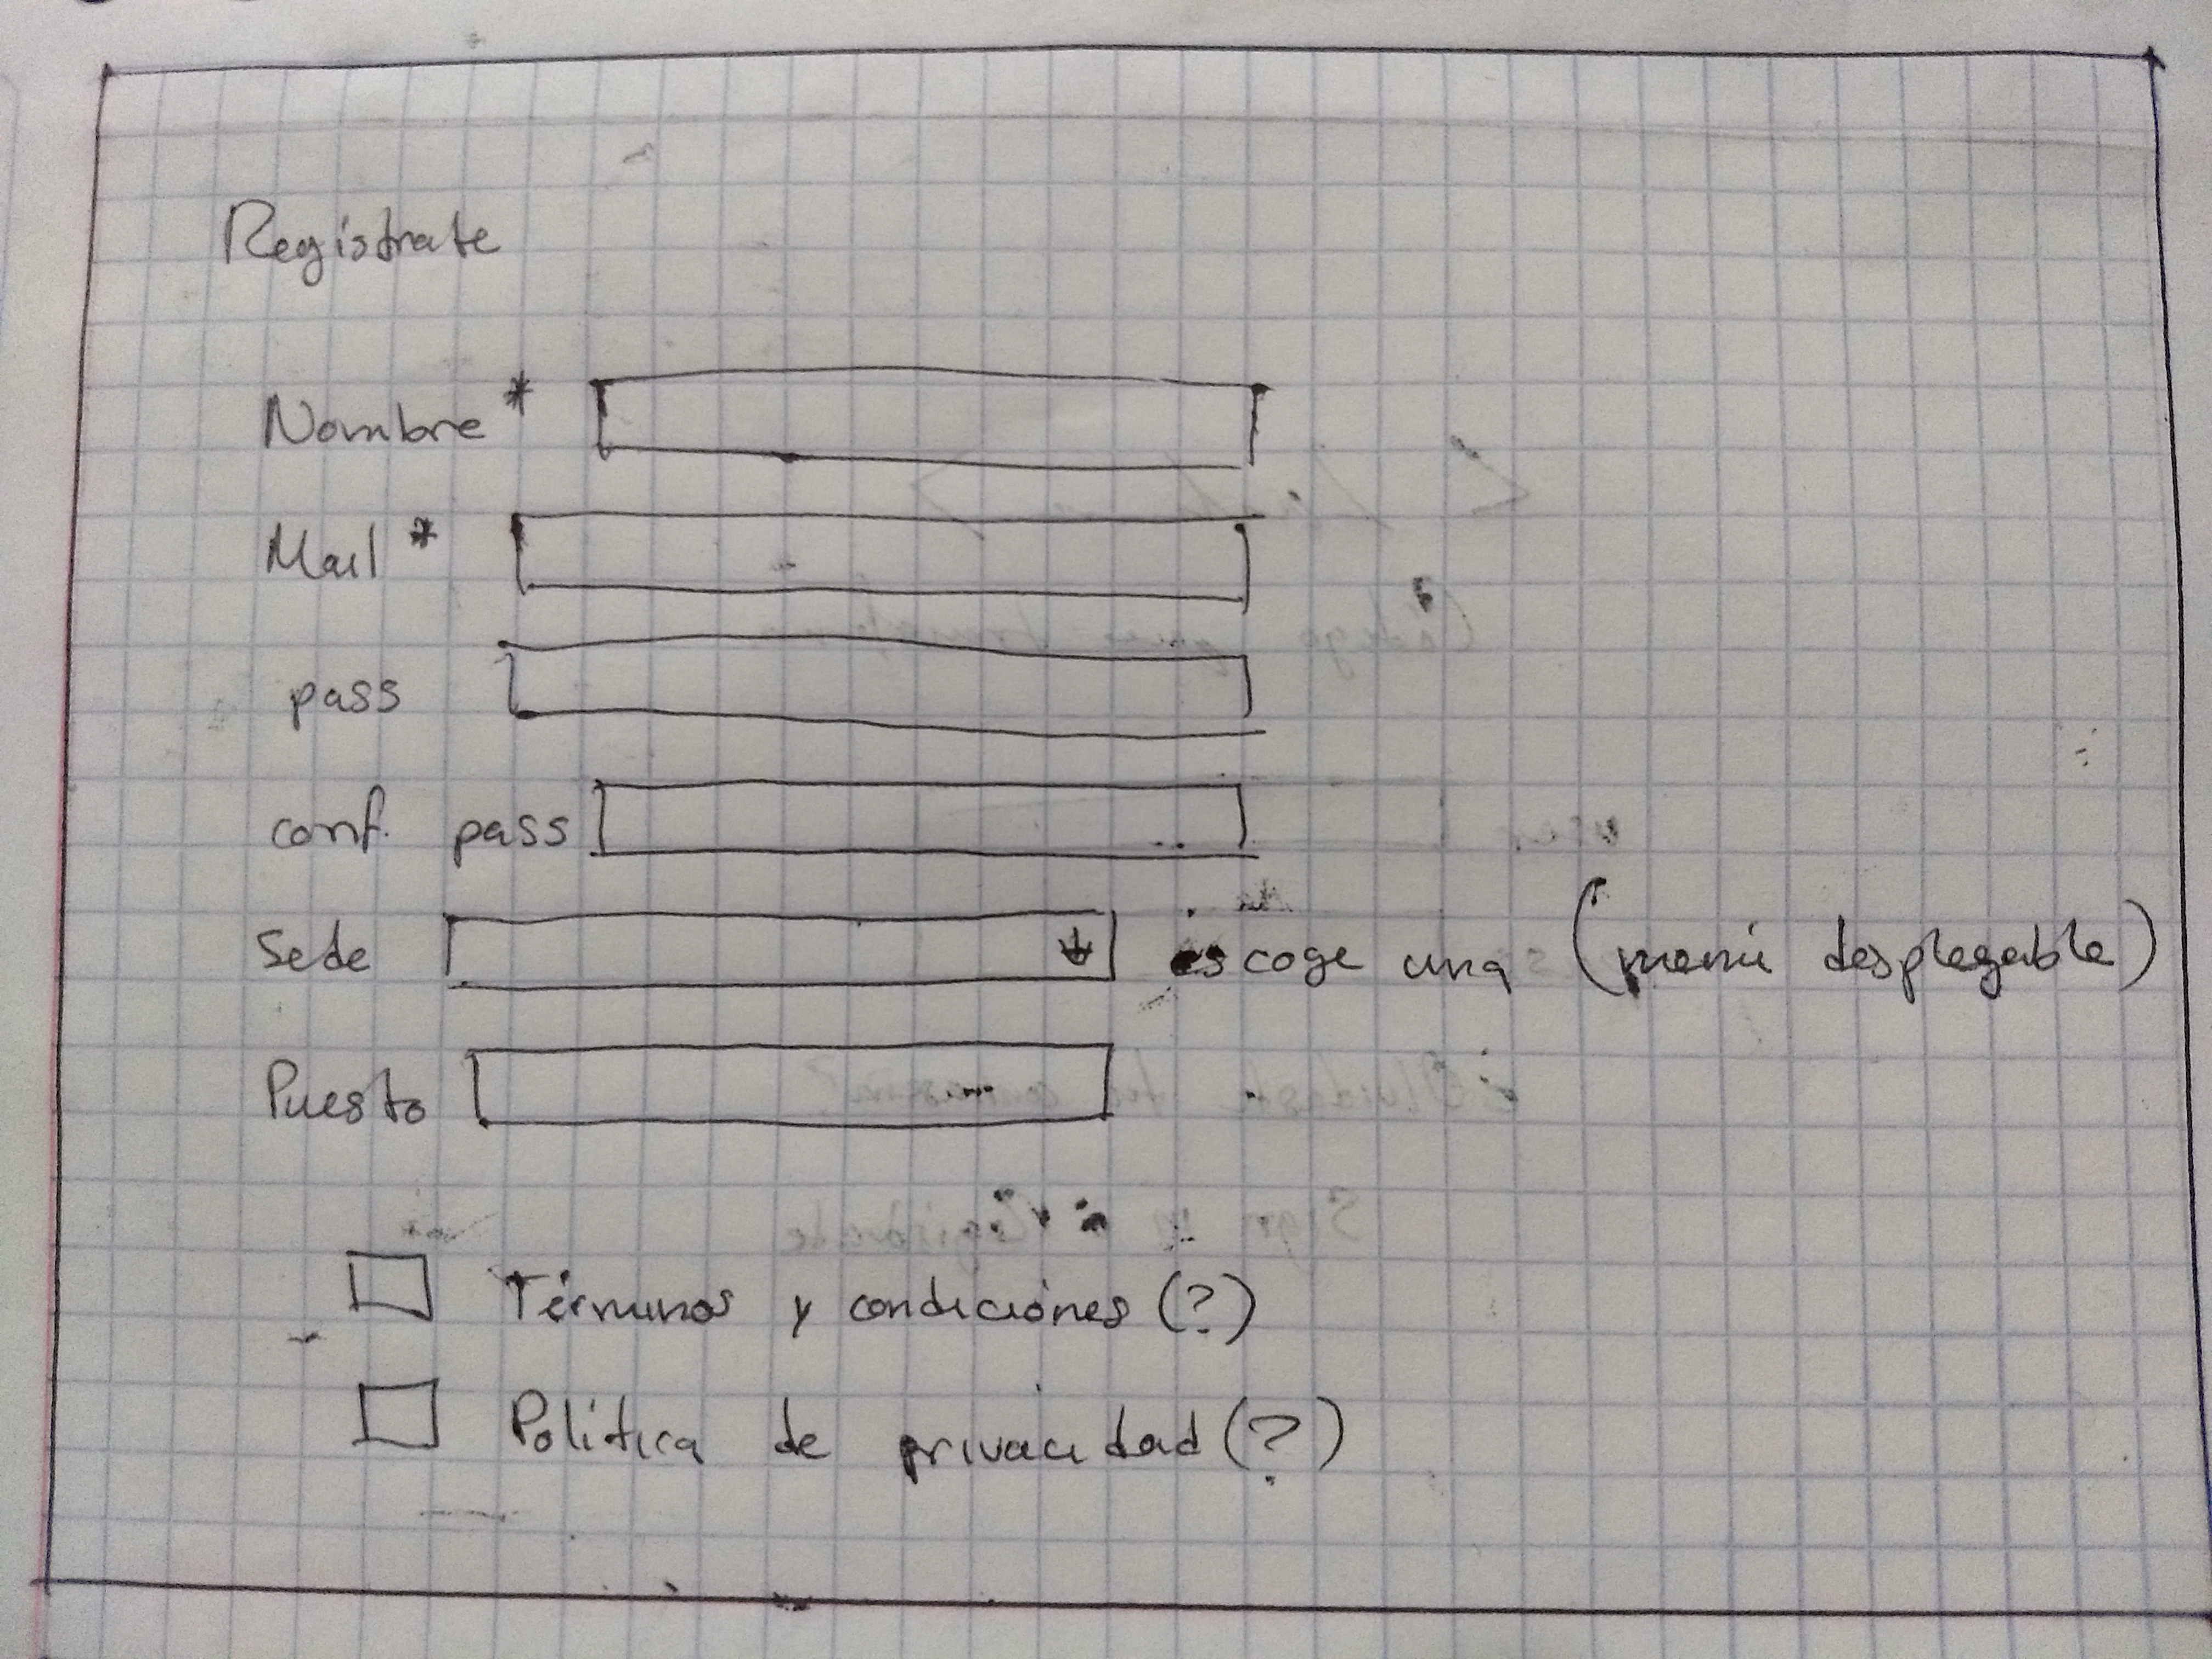 Registrate
Nombre *
Mail *
pass
conf. pass
Sede escoge una (menú desplegable)
Puesto
Términos y condiciones (?)
Política de privacidad (?)